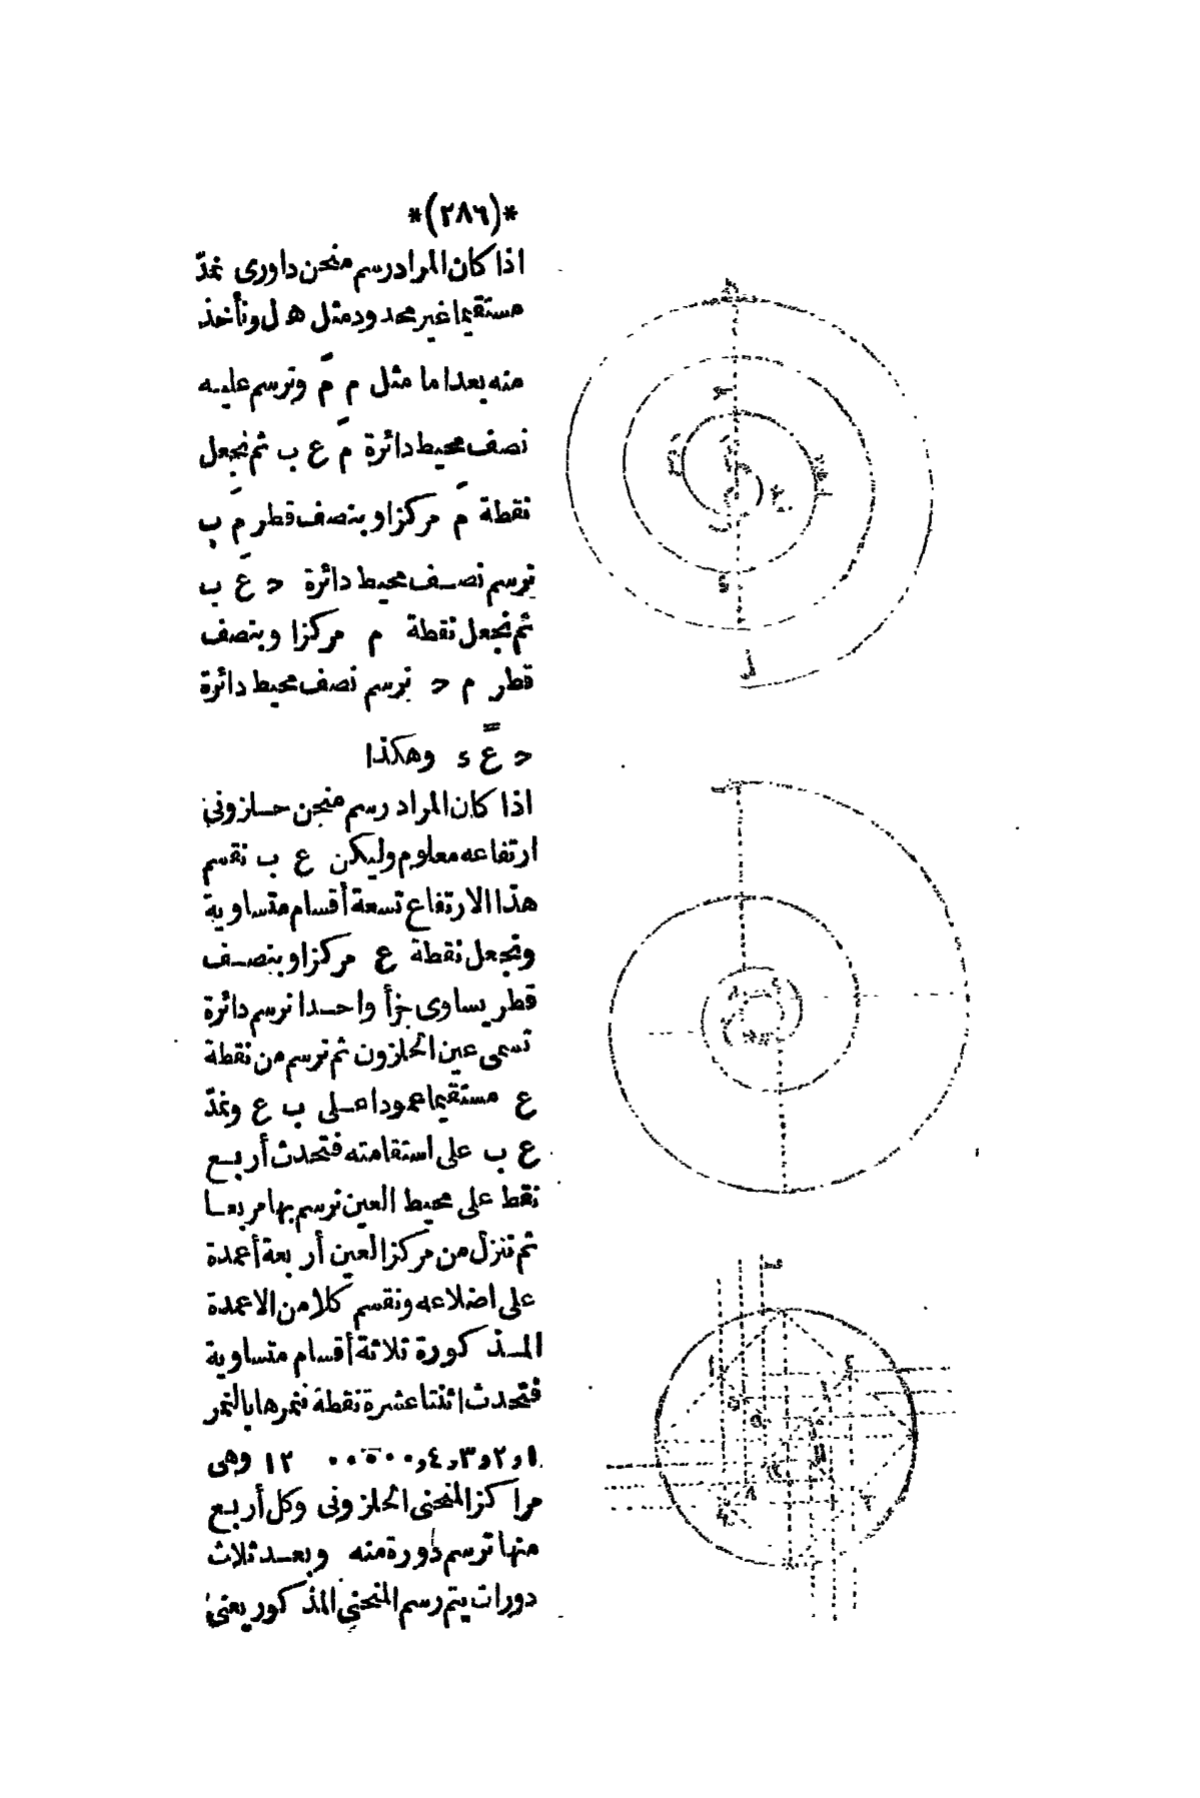 *(٢٨٦)*
اذا كان المراد رسم منحن داورى نمدّ
مستقيما غير محدود مثل ه ل ونأخذ
منه بعدا ما مثل م مَ ونرسم عليه
نصف محيط دائرة مَ ع ب ثم نجعل
نقطة مَ مركزا وبنصف قطر مَ ب
نرسم نصف محيط دائرة ح عَ ب
ثم نجعل نقطة م مركزا وبنصف
قطر م ح نرسم نصف محيط دائرة
ح عً ء وهكذا
اذا كان المراد رسم منحن حلزونى
ارتفاعه معلوم وليكن ع ب نقسم
هذا الارتفاع تسعة أقسام متساوية
ونجعل نقطة ع مركزا وبنصف
قطر يساوى جزأ واحدا نرسم دائرة
تسمى عين الحلزون ثم نرسم من نقطة
ع مستقيما عمودا على ب ع ونمدّ
ع ب على استقامته فتحدث أربع
نقط على محيط العين نرسم بها مربعا
ثم ننزل من مركز العين أربعة أعمدة
على اضلاعه ونقسم كلا من الاعمدة
المذكورة ثلاثة أقسام متساوية
فتحدث اثنتا عشرة نقطة ننمرها بالنمر
١ و٢ و٣ و٤ و ٠٠٠٠٠ ١٢ وهى
مراكز المنحنى الحلزونى وكل أربع
منها نرسم دورة منه وبعد ثلاث
دورات يتم رسم المنحنى المذكور يعنى